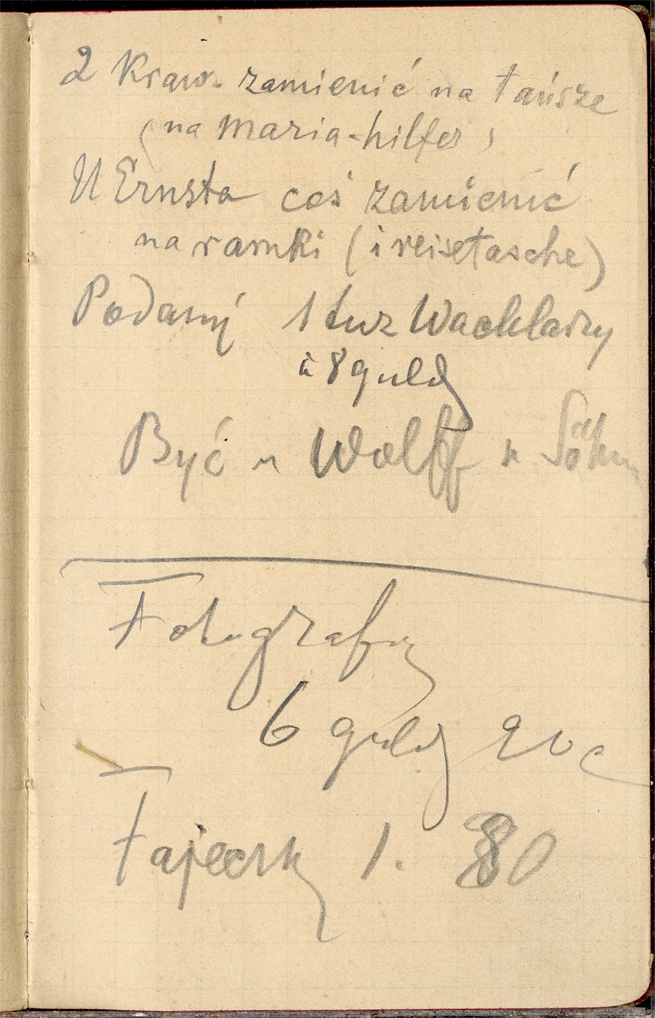 2 Kraw. zamienić na tańsze
(na Maria-hilfer)
U Ernsta coś zamienić
na ramki (i reisetasche)
Podany 1 tuz Wachlarzy
à 8 guld
Być u Wolff u
Fotografie
6 guld 20 c
Fajeczk 1. 80